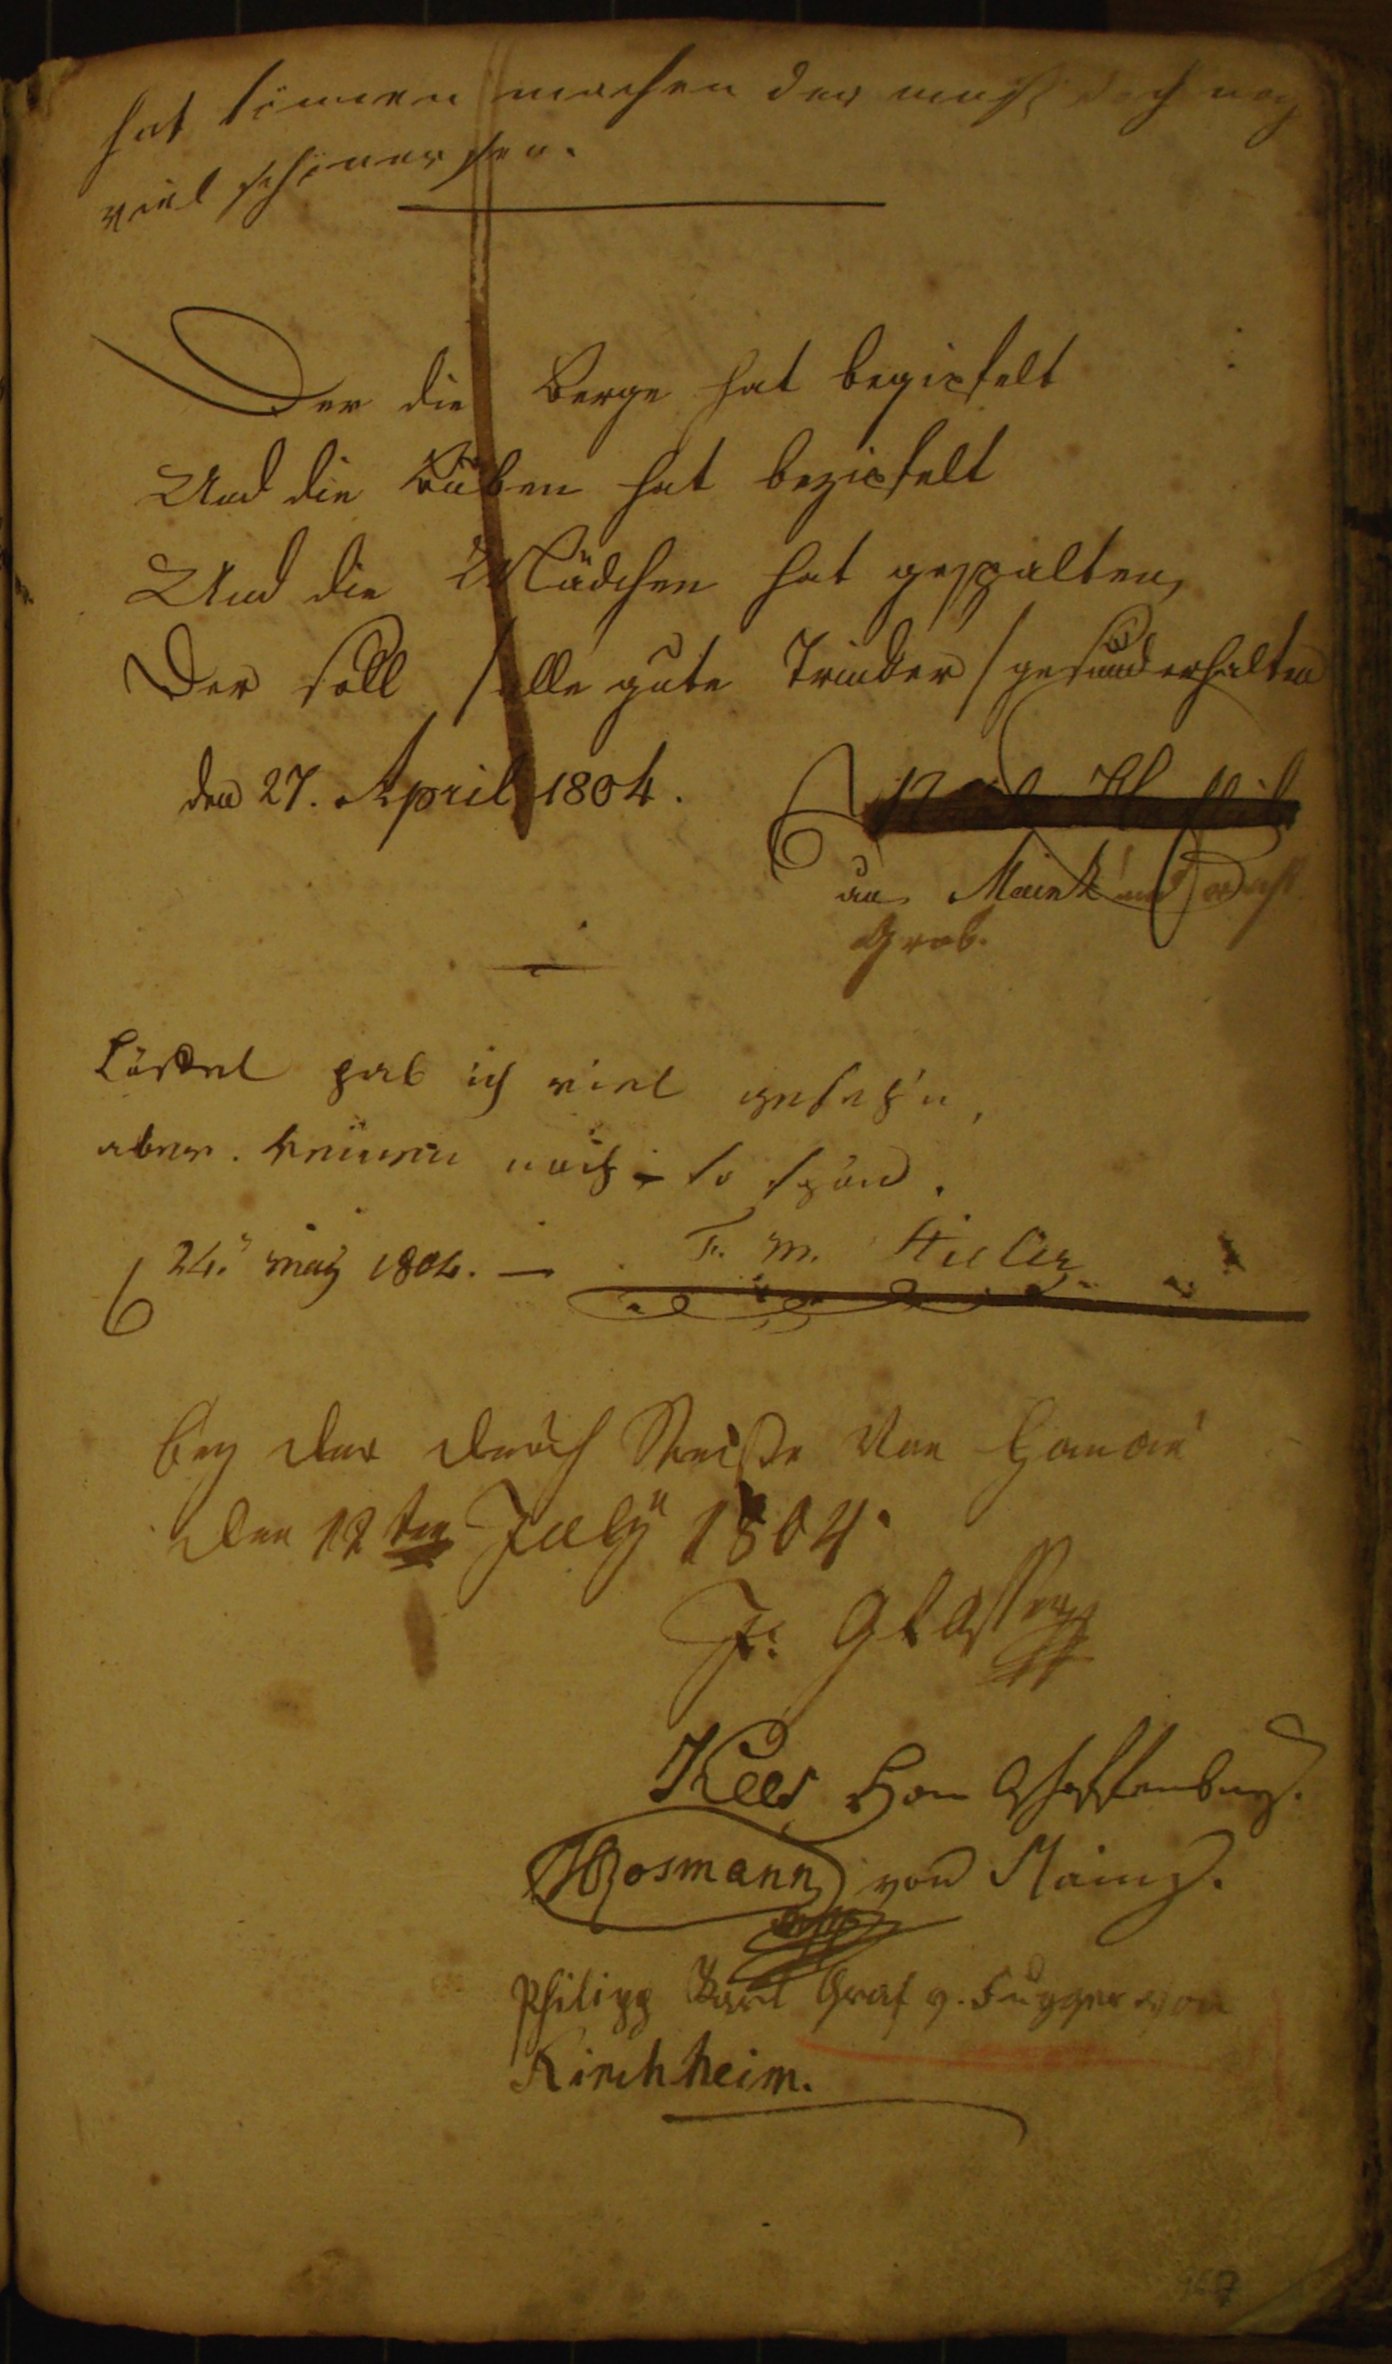 hat können machen der muß doch noch
viel schöner seyn.
Der die Berge hat begipfelt
Und die Buben hat bezipfelt
Und die Mädchen hat gespalten,
Der soll alle gute Trinker gesund erhalten
den 27. April 1804.
aus
Grob.
hab ich viel geseh'n,
aber keinen noch so schön.
24. May 1804. F. M.
bey der durch Reise von Hanau
den 12ten July 1804.
J. Glasser
Kees von Aschaffenburg.
Bosmann von Mainz.
Philipp Karl Graf v. Fugger von
Kirchheim.